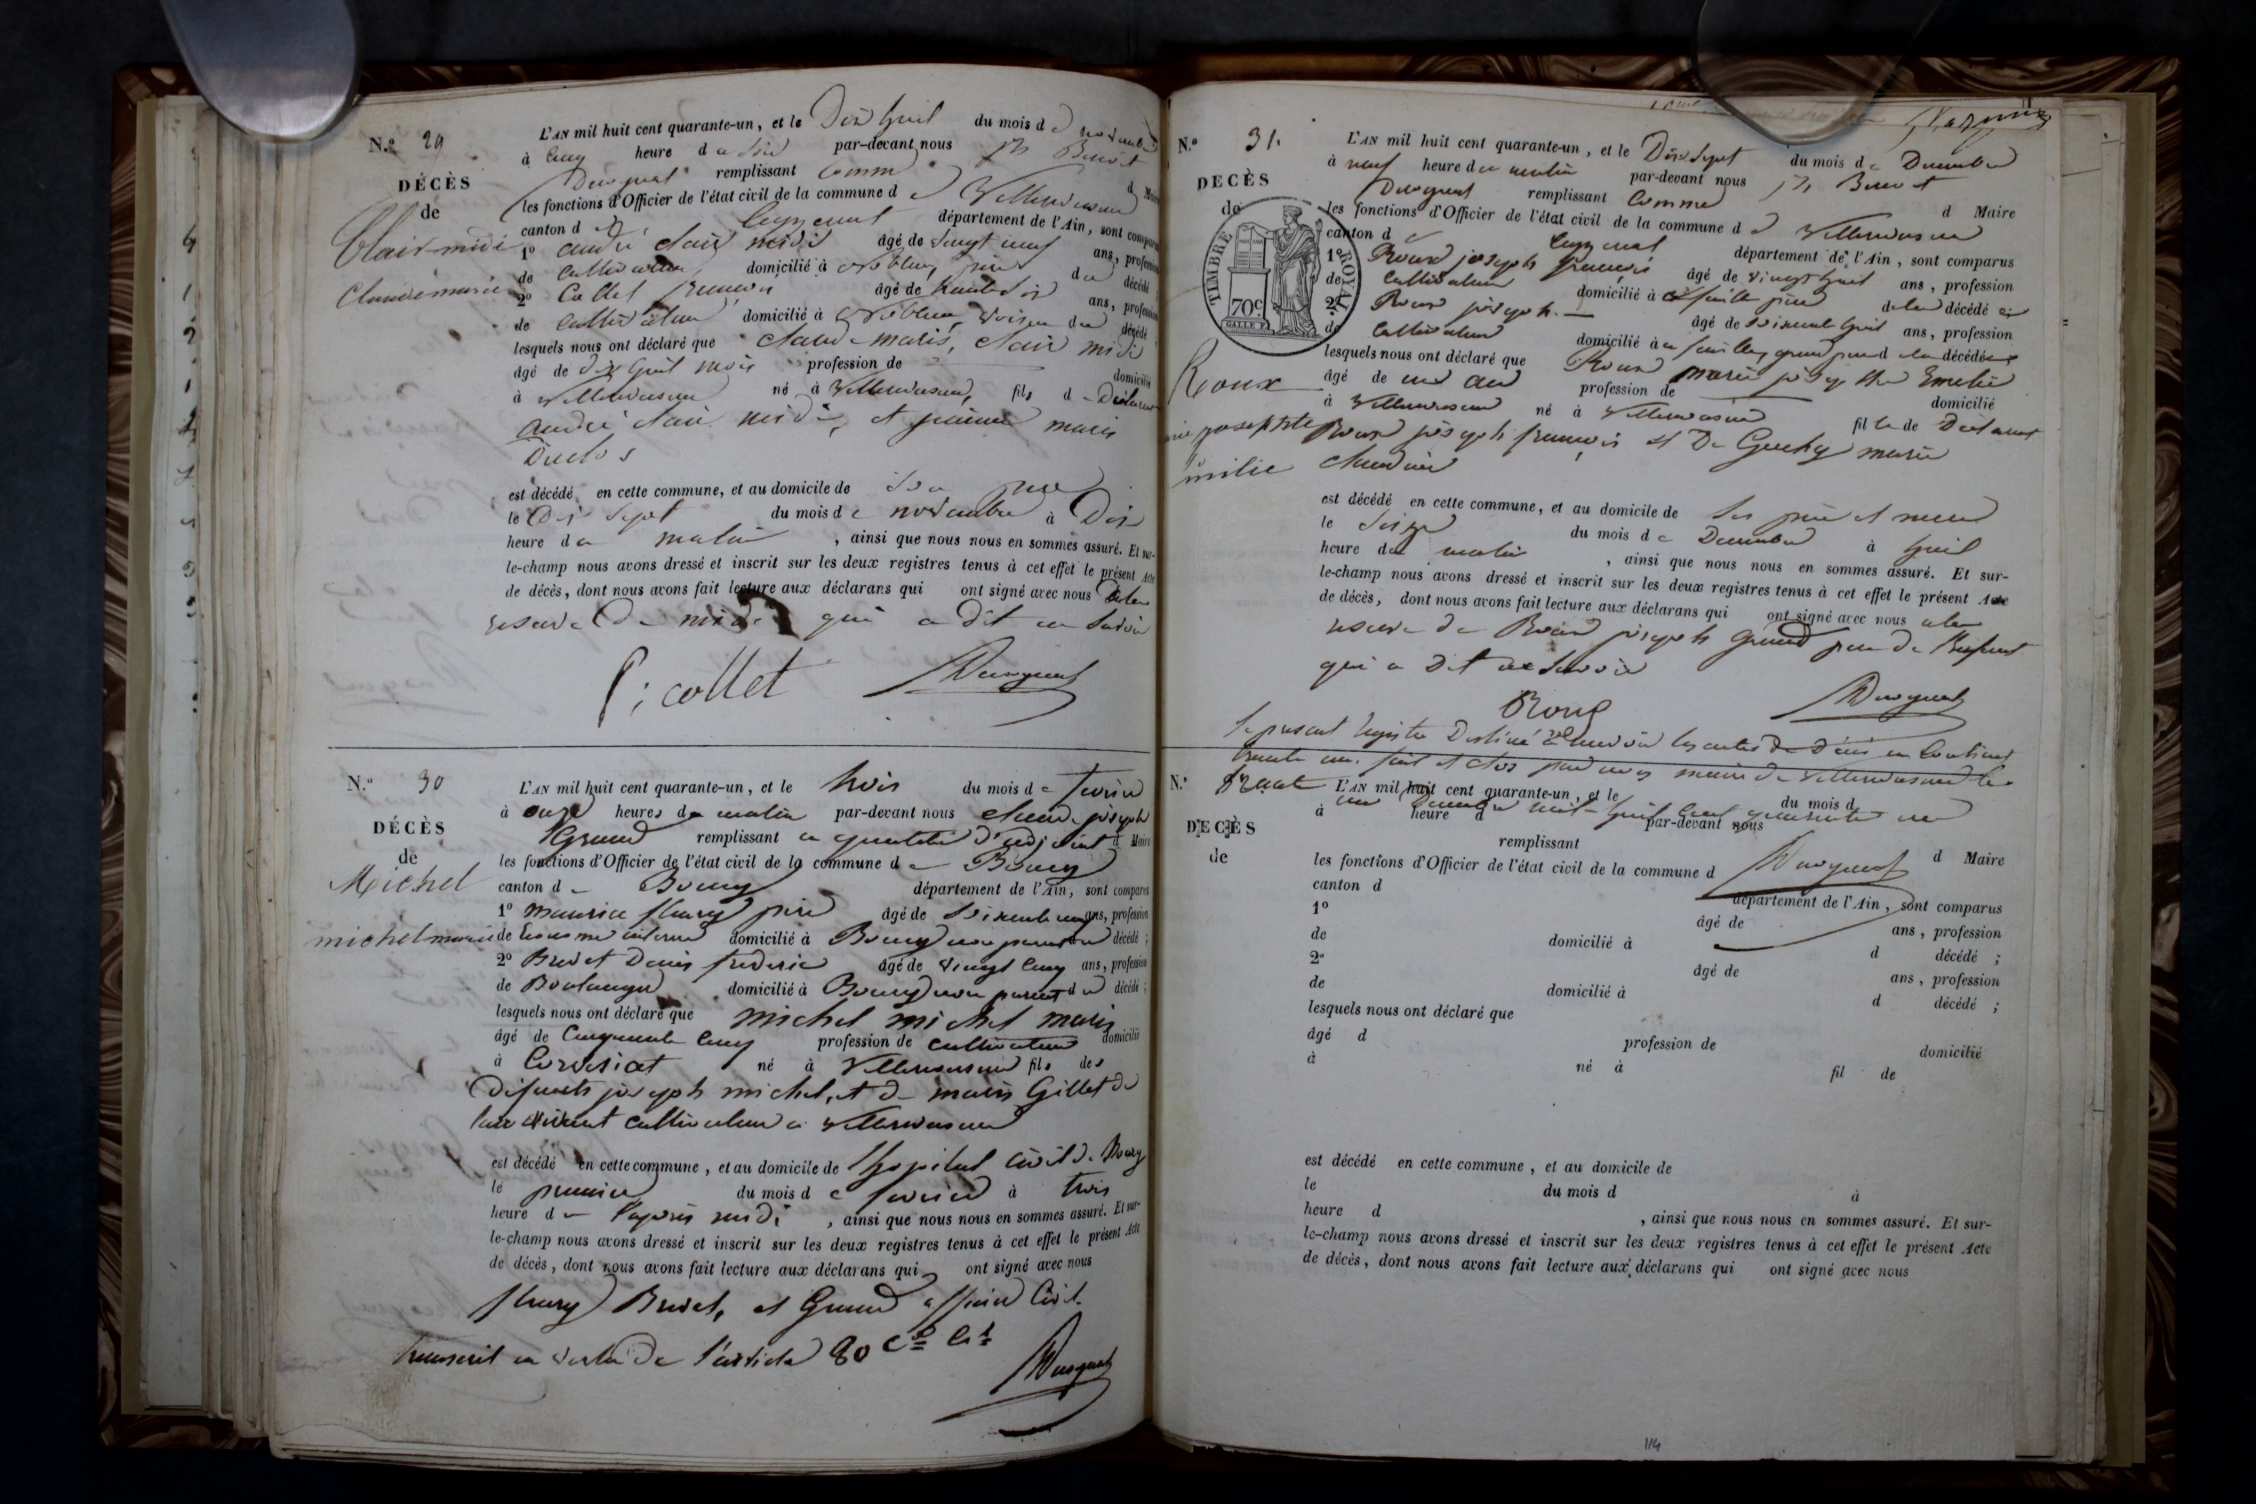 N.º 29
DÉCÈS
de
Clair-midi
Claude marie
L'AN mil huit cent quarante-un, et le Dix huit du mois de novembre
à cinq heure du soir par-devant nous Benoit
Duroquat remplissant comme d Maire
les fonctions d'Officier de l'état civil de la commune de Villereversure
canton de Ceyzeriat département de l'Ain, sont comparus
1º andré clair midi âgé de vingt neuf ans, profession
de cultivateur domicilié à père du décédé
2º Collet françois âgé de trente six ans, profession
de cultivateur domicilié à voisin du décédé
lesquels nous ont déclaré que claude marie, clair midi
âgé de dix huit mois profession de domicilié
à villereversure né à villereversure, fils d Déclarant
andré clair midi, et jeanne marie
Duclos
est décédé en cette commune, et au domicile de son père
le Dix sept du mois de novembre à Dix
heure du matin, ainsi que nous nous en sommes assuré. Et sur-
le-champ nous avons dressé et inscrit sur les deux registres tenus à cet effet le présent Acte
de décès, dont nous avons fait lecture aux déclarans qui ont signé avec nous à la
reserve de midi qui a dit ne savoir
f; collet
N.º 30
DÉCÈS
de
Michel
michel marie
L'AN mil huit cent quarante-un, et le trois du mois de fevrier
à onze heures du matin par-devant nous claude joseph
Grand remplissant en qualité d'adjoint d Maire
les fonctions d'Officier de l'état civil de la commune de Bourg
canton de Bourg département de l'Ain, sont comparus
1º maurice fleury père âgé de soixante un ans, profession
de Econome interne domicilié à Bourg non parent du décédé;
2º Brevet Denis frederic âgé de vingt cinq ans, profession
de Boulanger domicilié à Bourg non parent du décédé;
lesquels nous ont déclaré que michel michel marie
âgé de Cinquante cinq profession de cultivateur domicilié
à Corveissiat né à Villereversure fils des
Defunts joseph michel, et de marie Gillet de
leur vivant cultivateur à villereversure
est décédé en cette commune, et au domicile de l'hopital civil de Bourg
le premier du mois de fevrier à trois
heure de l'après midi, ainsi que nous nous en sommes assuré. Et sur-
le-champ nous avons dressé et inscrit sur les deux registres tenus à cet effet le présent Acte
de décès, dont nous avons fait lecture aux déclarans qui ont signé avec nous
fleury Brevet, et Grand officier Civil.
transcrit en vertu de l'article 80
N.º 31.
DECÈS
de
TIMBRE ROYAL
70 c.
Roux
marie josephte
émilie
L'AN mil huit cent quarante-un, et le Dix sept du mois de Decembre
à neuf heure du matin par-devant nous Benoit
Duroquat remplissant comme d Maire
les fonctions d'Officier de l'état civil de la commune de Villereversure
canton de Ceyzeriat département de l'Ain, sont comparus
1º Roux joseph françois âgé de vingt huit ans, profession
de cultivateur domicilié à père de la décédée
2º Roux joseph. âgé de soixante huit ans, profession
de cultivateur domicilié à grand père de la décédée
lesquels nous ont déclaré que Roux marie josephte Emelie
âgé de un an profession de domicilié
à Villereversure né à Villereversure fille de Déclarant
Roux joseph françois et De marie
claudine
est décédé en cette commune, et au domicile de ses père et mère
le seize du mois de Decembre à huit
heure du matin, ainsi que nous nous en sommes assuré. Et sur-
le-champ nous avons dressé et inscrit sur les deux registres tenus à cet effet le présent Acte
de décès, dont nous avons fait lecture aux déclarans qui ont signé avec nous à la
reserve de Roux joseph grand père de l'enfant
qui a dit ne savoir
Roux
le present registre Destiné à recevoir les actes de décès en contient
trente un. fait et clos par nous maire de villereversure le
trente
un Decembre mil huit cent quarante un
N.º
DECÈS
de
L'AN mil huit cent quarante-un, et le du mois d
à heure d par-devant nous
remplissant d Maire
les fonctions d'Officier de l'état civil de la commune d
canton d département de l'Ain, sont comparus
1º âgé de ans, profession
de domicilié à d décédé;
2º âgé de ans, profession
de domicilié à d décédé;
lesquels nous ont déclaré que
âgé d profession de domicilié
à né à fil de
est décédé en cette commune, et au domicile de
le du mois d à
heure d, ainsi que nous nous en sommes assuré. Et sur-
le-champ nous avons dressé et inscrit sur les deux registres tenus à cet effet le présent Acte
de décès, dont nous avons fait lecture aux déclarans qui ont signé avec nous
114